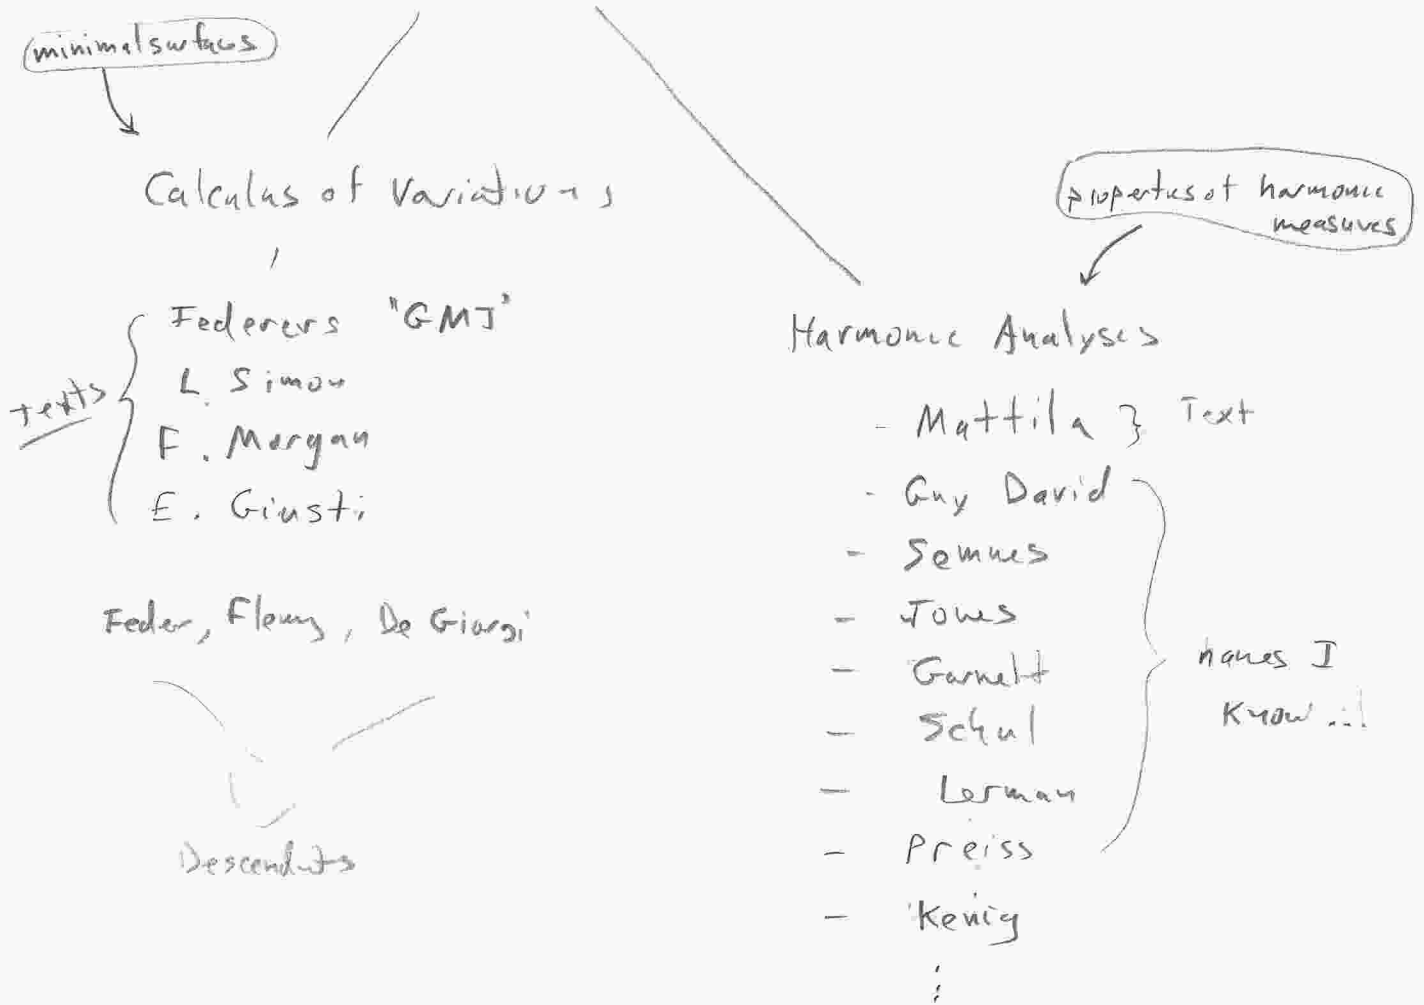 minimal surfaces
Calculus of Variations
texts
Federers "GMT"
L. Simon
F. Morgan
E. Giusti
Feder, Flemg, De Giorgi
Descendts
properties of harmonic
measures
Harmonic Analyses
- Mattila } Text
- Guy David
- Semmes
- Jones
- Garnett
- Schul
- Lerman
- Preiss
- Kenig
names I
Know...